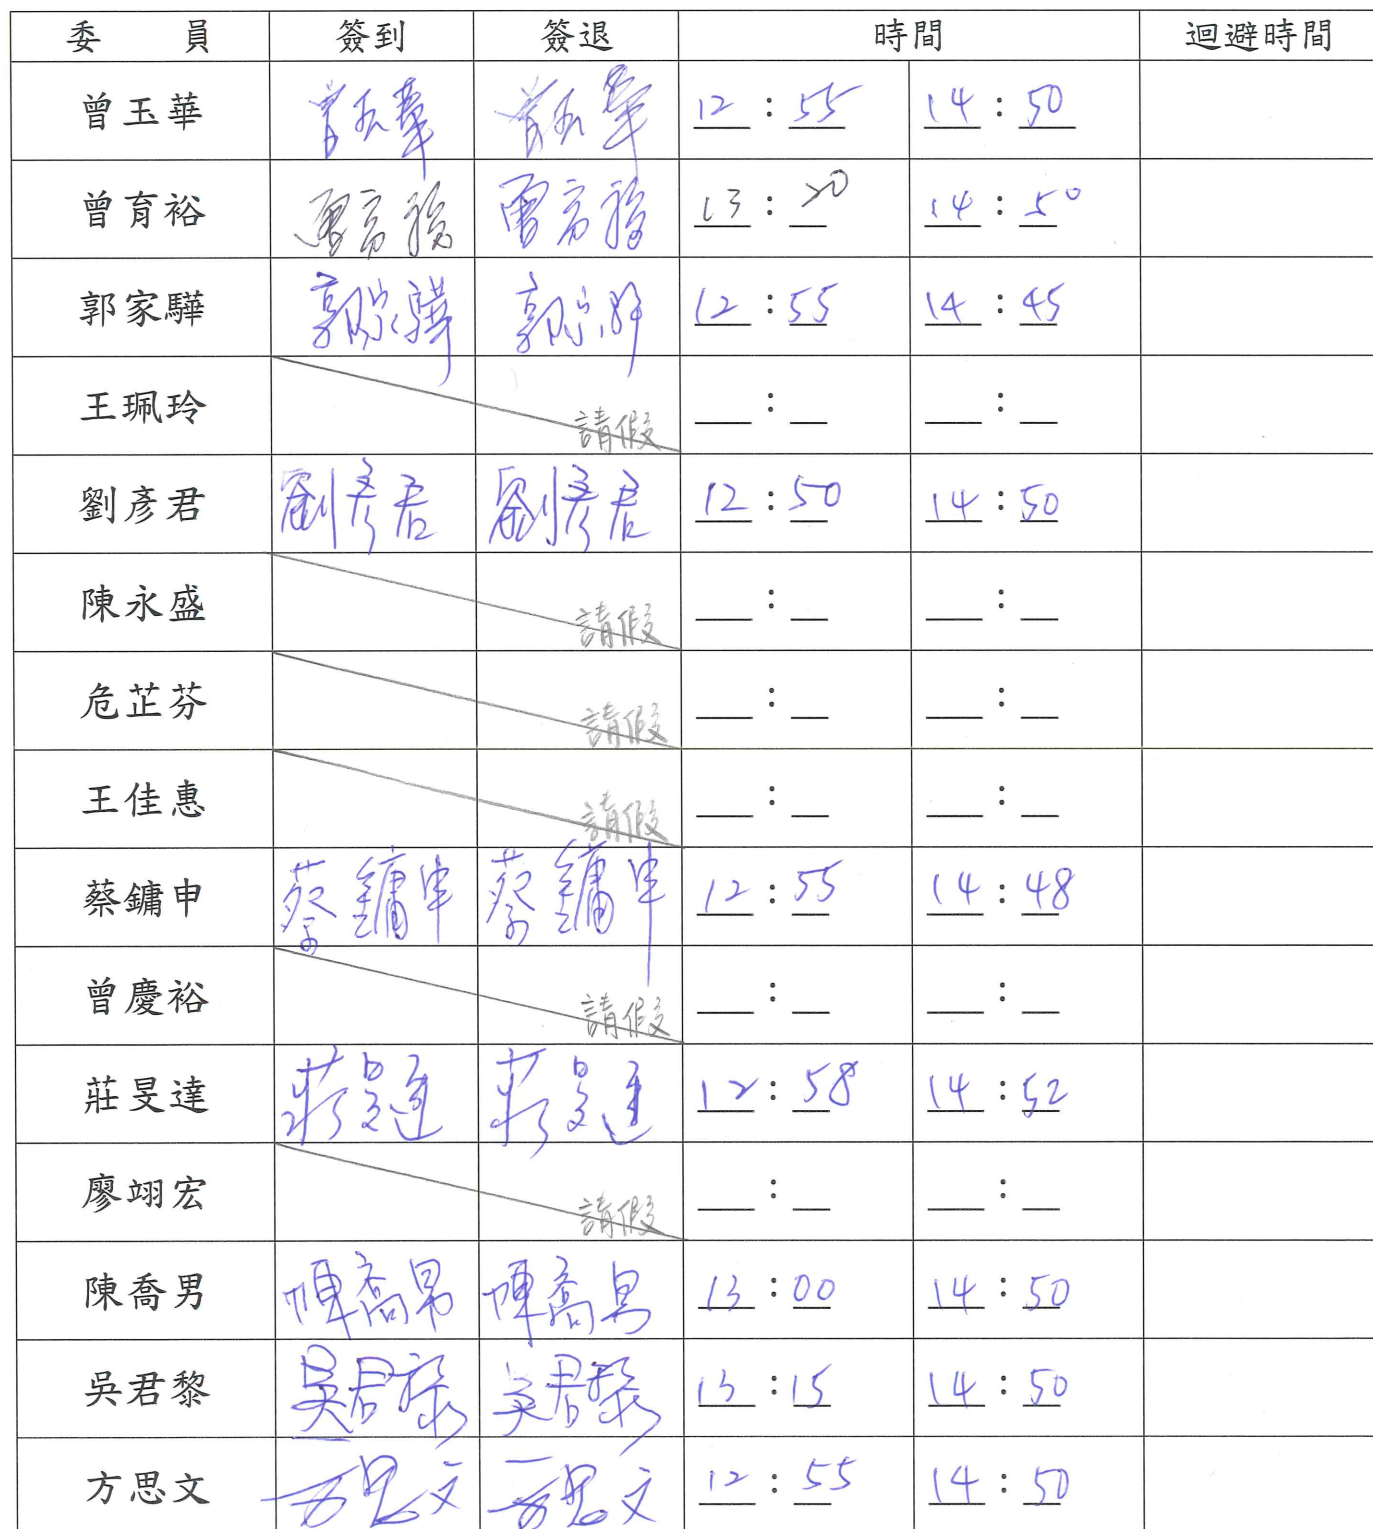 委 員 簽到 簽退 時間 迴避時間
曾玉華 曾玉華 曾玉華 12:55 14:50
曾育裕 曾育裕 曾育裕 13:20 14:50
郭家驊 郭家驊 郭家驊 12:55 14:45
王珮玲 請假 : :
劉彥君 劉彥君 劉彥君 12:50 14:50
陳永盛 請假 : :
危芷芬 請假 : :
王佳惠 請假 : :
蔡鏞申 蔡鏞申 蔡鏞申 12:55 14:48
曾慶裕 請假 : :
莊旻達 莊旻達 莊旻達 12:58 14:52
廖翊宏 請假 : :
陳喬男 陳喬男 陳喬男 13:00 14:50
吳君黎 吳君黎 吳君黎 13:15 14:50
方思文 方思文 方思文 12:55 14:50